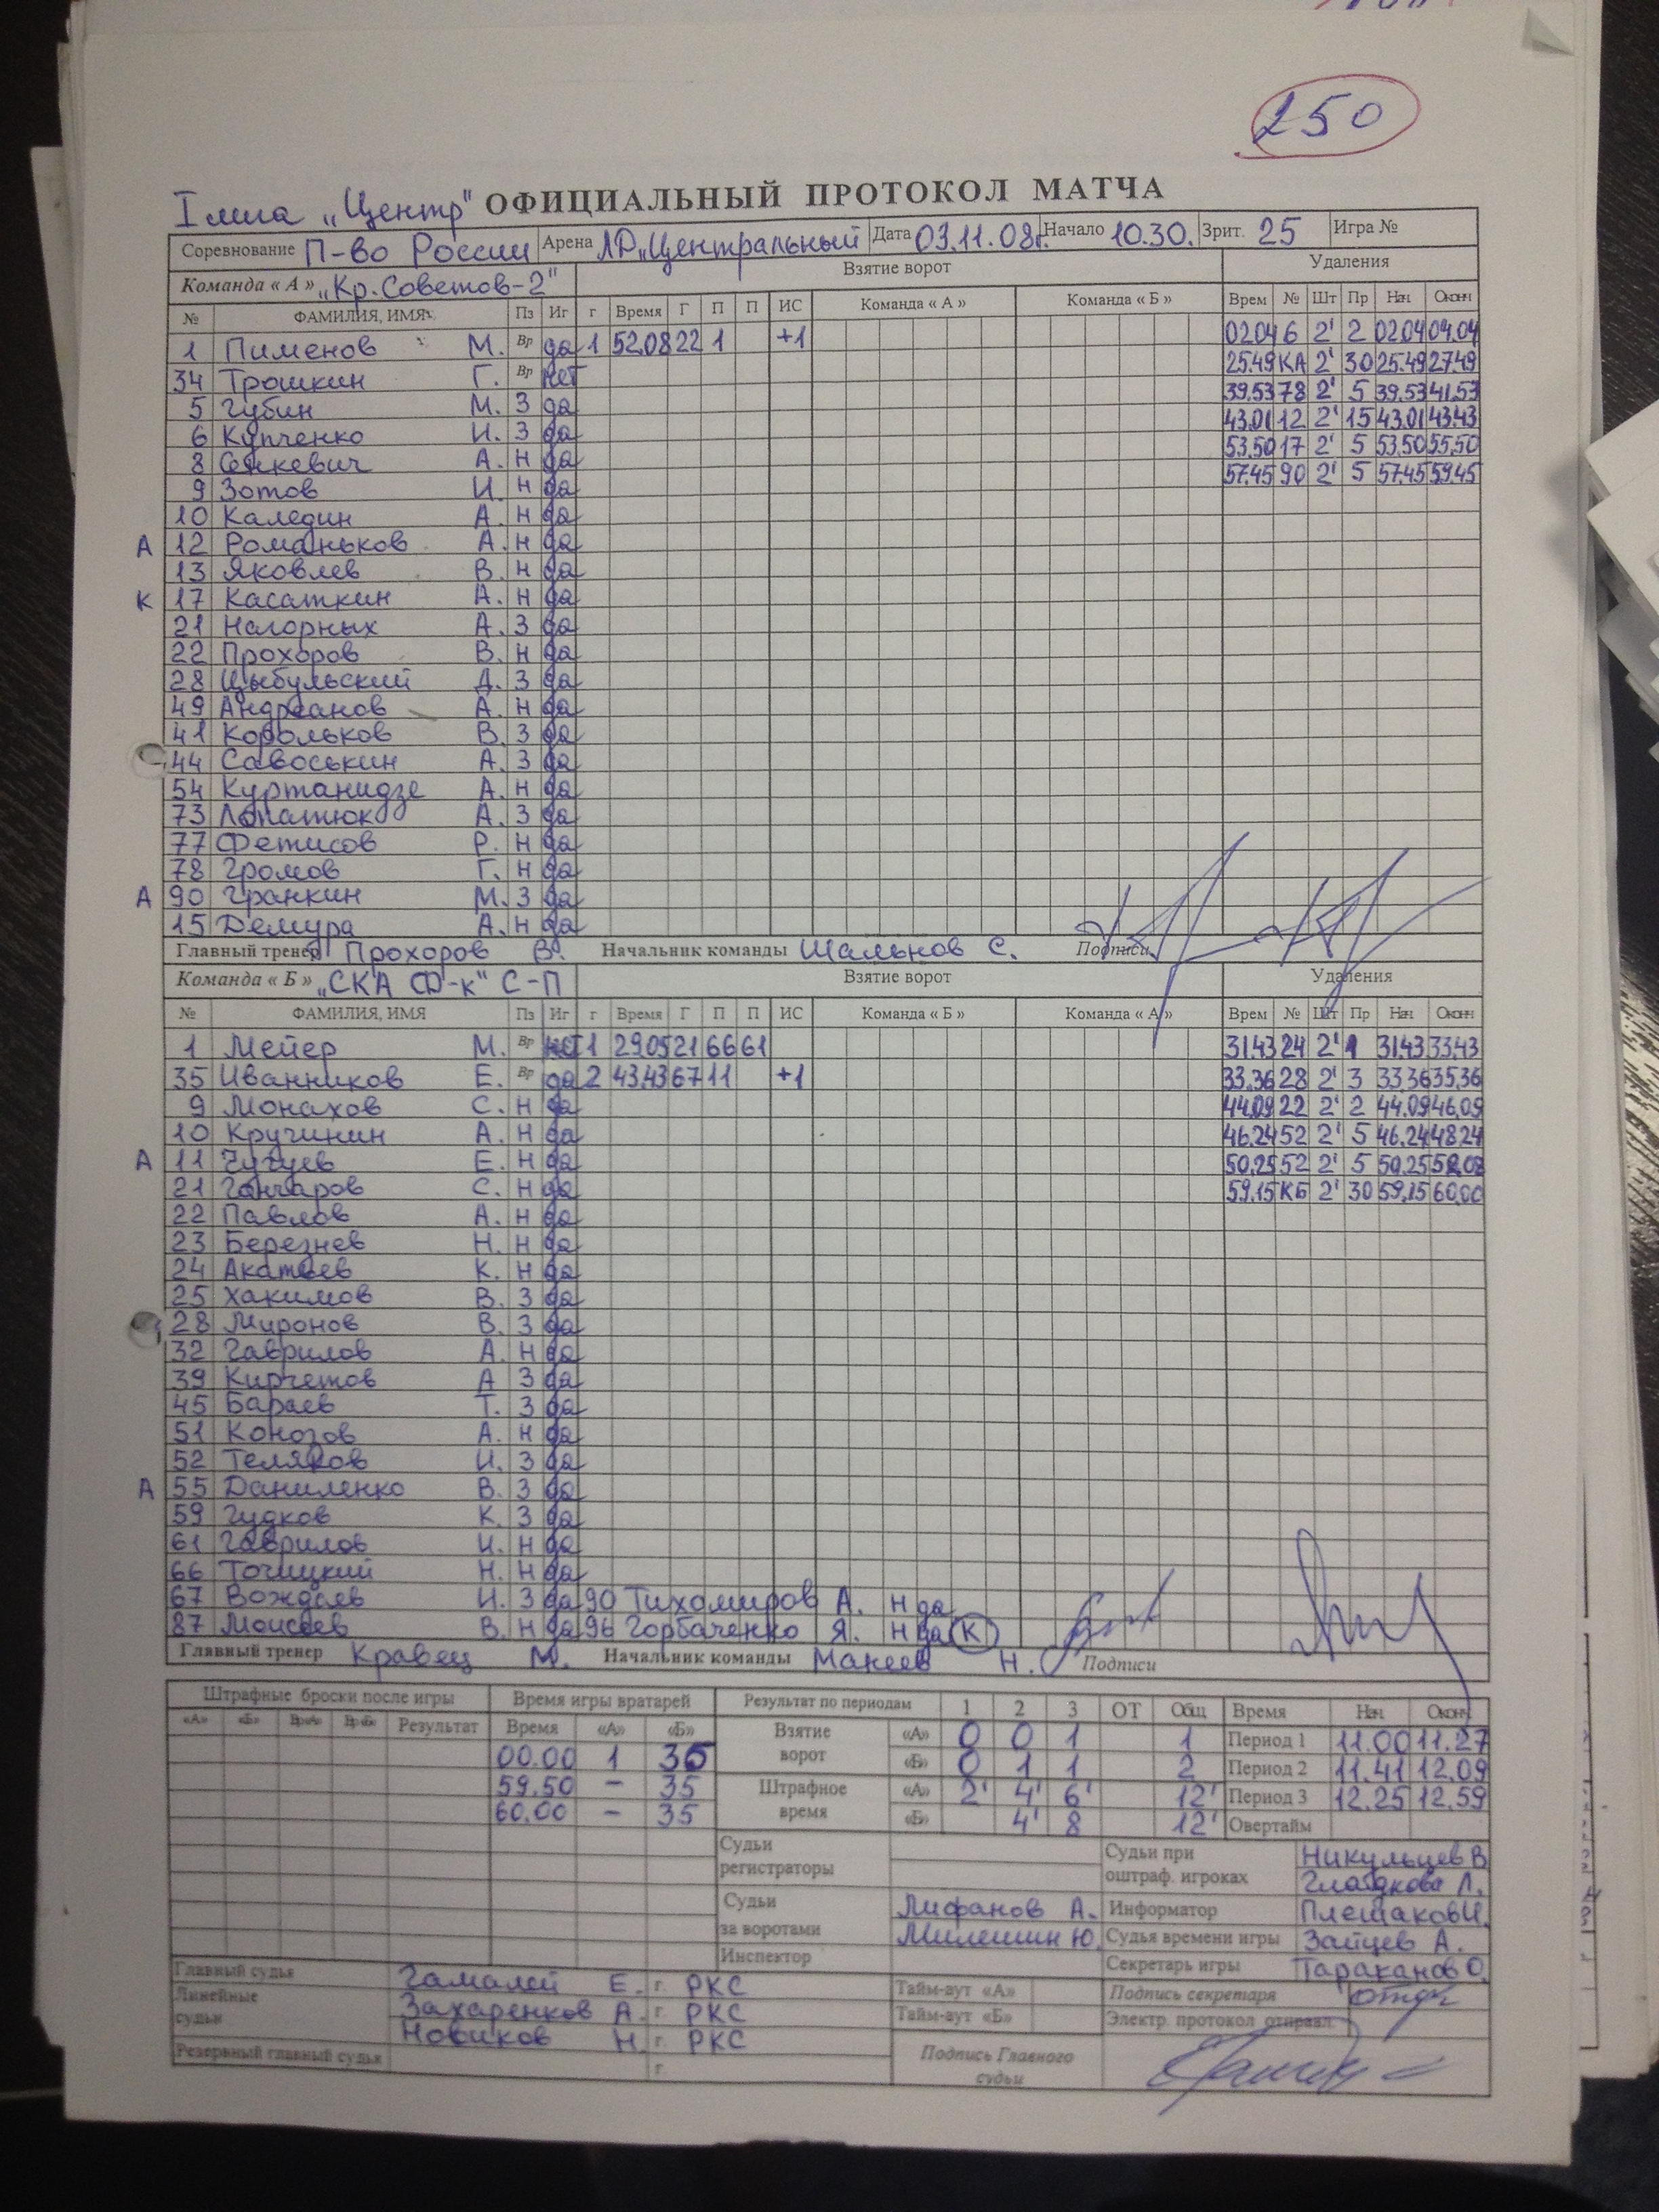 250
I лига „Центр" ОФИЦИАЛЬНЫЙ ПРОТОКОЛ МАТЧА
Соревнование П-во России Арена ЛД „Центральный Дата 03.11.08г. Начало 10.30. Зрит. 25 Игра №
Команда « А » „Кр.Советов-2" Взятие ворот Удаления
№ ФАМИЛИЯ, ИМЯ Пз Иг г Время Г П П ИС Команда « А » Команда « Б » Врем № Шт Пр Нач Оконч
1 Пименов М. Вр да 1 52.08 22 1 +1 02.04 6 2' 2 02.04 04.04
34 Трошкин Г. Вр нет 25.49 КА 2' 30 25.49 27.49
5 Губин М. З да 39.53 78 2' 5 39.53 41.53
6 Купченко И. З да 43.01 12 2' 15 43.01 43.43
8 Сенкевич А. Н да 53.50 17 2' 5 53.50 55.50
9 Зотов И. Н да 57.45 90 2' 5 57.45 59.45
10 Каледин А. Н да
А 12 Романьков А. Н да
13 Яковлев В. Н да
К 17 Касаткин А. Н да
21 Нагорных А. З да
22 Прохоров В. Н да
28 Цыбульский Д. З да
49 Андреанов А. Н да
41 Корольков В. З да
44 Савоськин А. З да
54 Куртанидзе А. Н да
73 Лопатюк А. З да
77 Фетисов Р. Н да
78 Громов Г. Н да
А 90 Гранкин М. З да
15 Демура А. Н да
Главный тренер Прохоров В. Начальник команды Шальнов С. Подписи
Команда « Б » „СКА Ф-к" С-П Взятие ворот Удаления
№ ФАМИЛИЯ, ИМЯ Пз Иг г Время Г П П ИС Команда « Б » Команда « А » Врем № Шт Пр Нач Оконч
1 Мейер М. Вр нет 1 29.05 21 66 61 31.43 24 2' 1 31.43 33.43
35 Иванников Е. Вр да 2 43.43 67 11 +1 33.36 28 2' 3 33.36 35.36
9 Монахов С. Н да 44.09 22 2' 2 44.09 46.09
10 Кручинин А. Н да 46.24 52 2' 5 46.24 48.24
А 11 Чугуев Е. Н да 50.25 52 2' 5 50.25 52.08
21 Гончаров С. Н да 59.15 КБ 2' 30 59.15 60.00
22 Павлов А. Н да
23 Березнев Н. Н да
24 Акатьев К. Н да
25 Хакимов В. З да
28 Миронов В. З да
32 Гаврилов А. Н да
39 Кирчетов А З да
45 Бараев Т. З да
51 Конозов А. Н да
52 Теляков И. З да
А 55 Даниленко В. З да
59 Гудков К. З да
61 Гаврилов И. Н да
66 Точицкий Н. Н да
67 Вождаев И. З да 90 Тихомиров А. Н да
87 Моисеев В. Н да 96 Горбаченко Я. Н да К
Главный тренер Кравец М. Начальник команды Макеев Н. Подписи
Штрафные броски после игры Время игры вратарей Результат по периодам 1 2 3 ОТ Общ Время Нач Оконч
«А» «Б» Вр«А» Вр«Б» Результат Время «А» «Б» Взятие ворот «А» 0 0 1 1 Период 1 11.00 11.27
00.00 1 35 «Б» 0 1 1 2 Период 2 11.41 12.09
59.50 – 35 Штрафное время «А» 2' 4' 6' 12' Период 3 12.25 12.59
60.00 – 35 «Б» 4' 8 12' Овертайм
Судьи регистраторы Судьи при оштраф. игроках Никульцев В
Гладкова Л.
Судьи за воротами Лифанов А. Информатор Плешаков И.
Милешин Ю. Судья времени игры Зайцев А.
Инспектор Секретарь игры Тараканов О.
Главный судья Гамалей Е. г. РКС Тайм-аут «А» Подпись секретаря
Линейные судьи Захаренков А. г. РКС Тайм-аут «Б» Электр. протокол отправл.
Новиков Н. г. РКС
Резервный главный судья г. Подпись Главного судьи